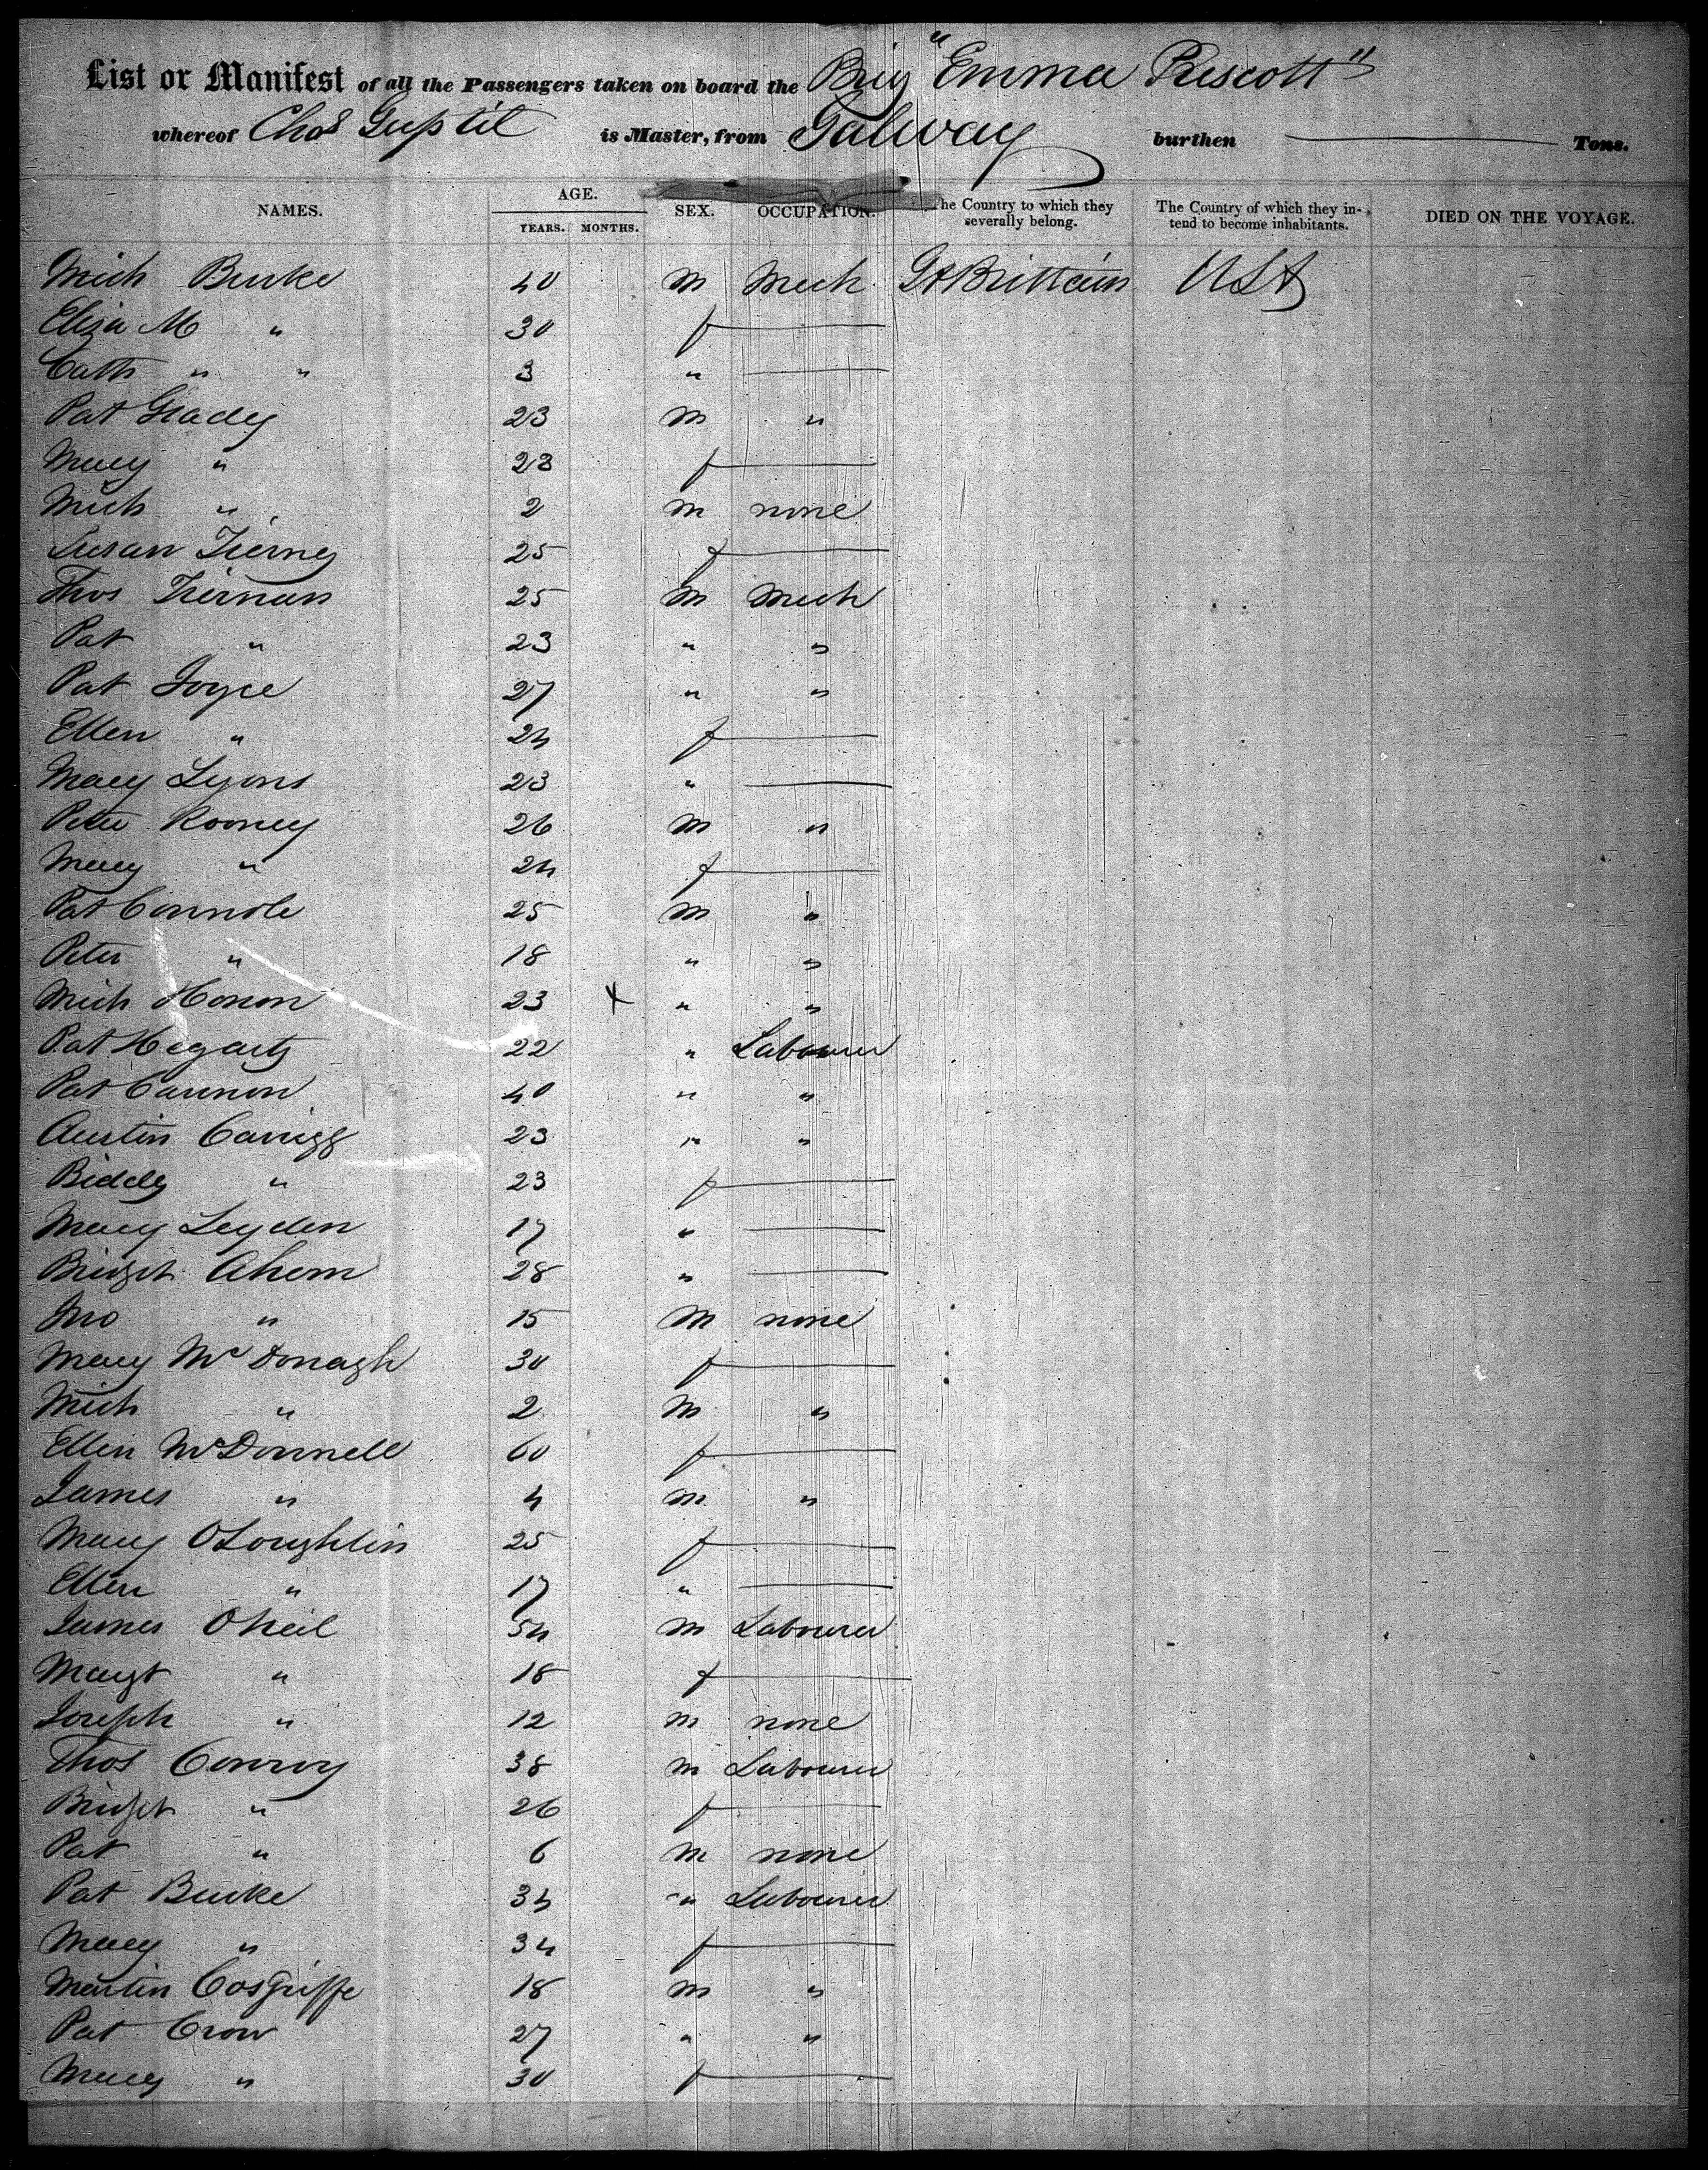 List or Manifest of all the Passengers taken on board the Brig "Emma Prescott"
whereof Chas Guptil is Master, from Galway burthen Tons.
NAMES. AGE. YEARS. MONTHS. SEX. OCCUPATION. The Country to which they severally belong. The Country of which they intend to become inhabitants. DIED ON THE VOYAGE.
Mich Burke 40 m Mech Gt Brittain USA
Eliza M " 30 f
Cath " " 3 "
Pat Grady 23 m "
Mary " 23 f
Mich " 2 m none
Susan Tierney 25 f
Thos Tiernan 25 m Mech
Pat " 23 " "
Pat Joyce 27 " "
Ellen " 24 f
Mary Lyons 23 "
Peter Rooney 26 m "
Mary " 24 f
Pat Connole 25 m "
Peter " 18 " "
Mich Honon 23 x " "
Pat Hegarty 22 " Labourer
Pat Cannon 40 " "
Austin Carrigg 23 " "
Biddy " 23 f
Mary Leyden 17 "
Bridget Ahern 28 "
Jno " 15 m none
Mary McDonagh 30 f
Mich " 2 m "
Ellen McDonnell 60 f
James " 4 m "
Mary OLoughlin 25 f
Ellen " 17 "
James ONeil 54 m Labourer
Margt " 18 f
Joseph " 12 m none
Thos Conroy 38 m Labourer
Bridget " 26 f
Pat " 6 m none
Pat Burke 34 " Labourer
Mary " 34 f
Martin Cosgriffe 18 m "
Pat Crow 27 " "
Mary " 30 f